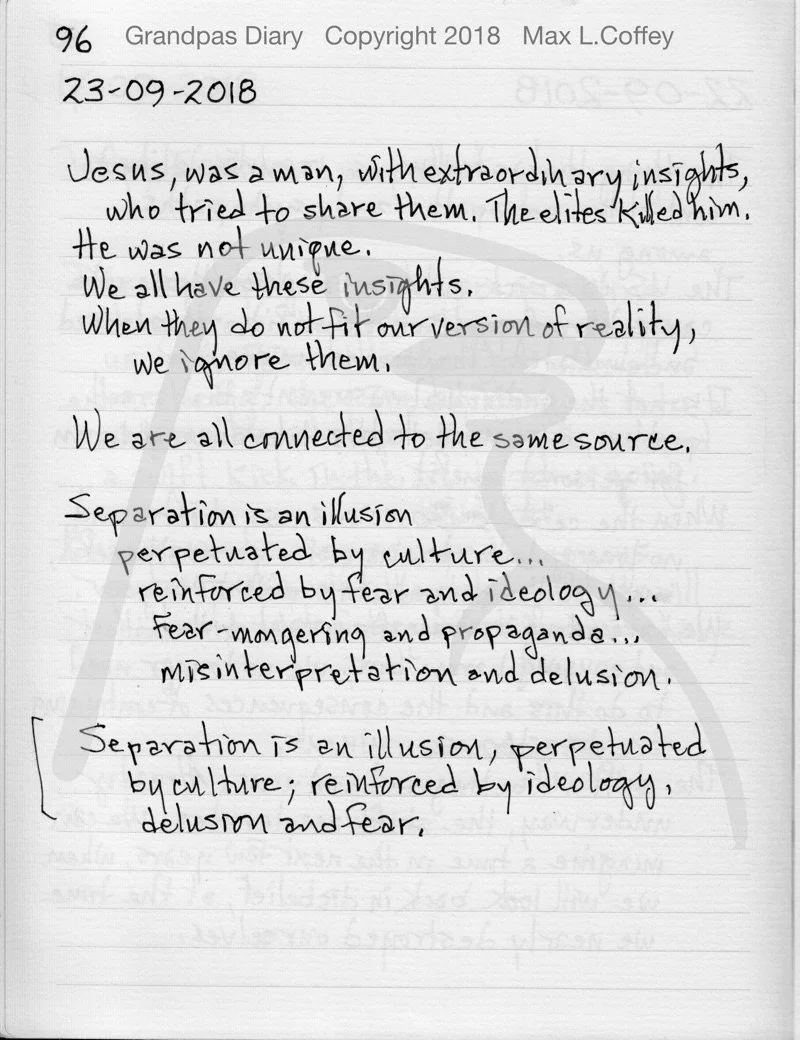 96 Grandpas Diary Copyright 2018 Max L.Coffey
23-09-2018
Jesus, was a man, with extraordinary insights,
who tried to share them. The elites killed him.
He was not unique.
We all have these insights.
When they do not fit our version of reality,
we ignore them.
We are all connected to the same source.
Separation is an illusion
perpetuated by culture...
reinforced by fear and ideology...
fear-mongering and propaganda...
misinterpretation and delusion.
Separation is an illusion, perpetuated
by culture; reinforced by ideology,
delusion and fear.